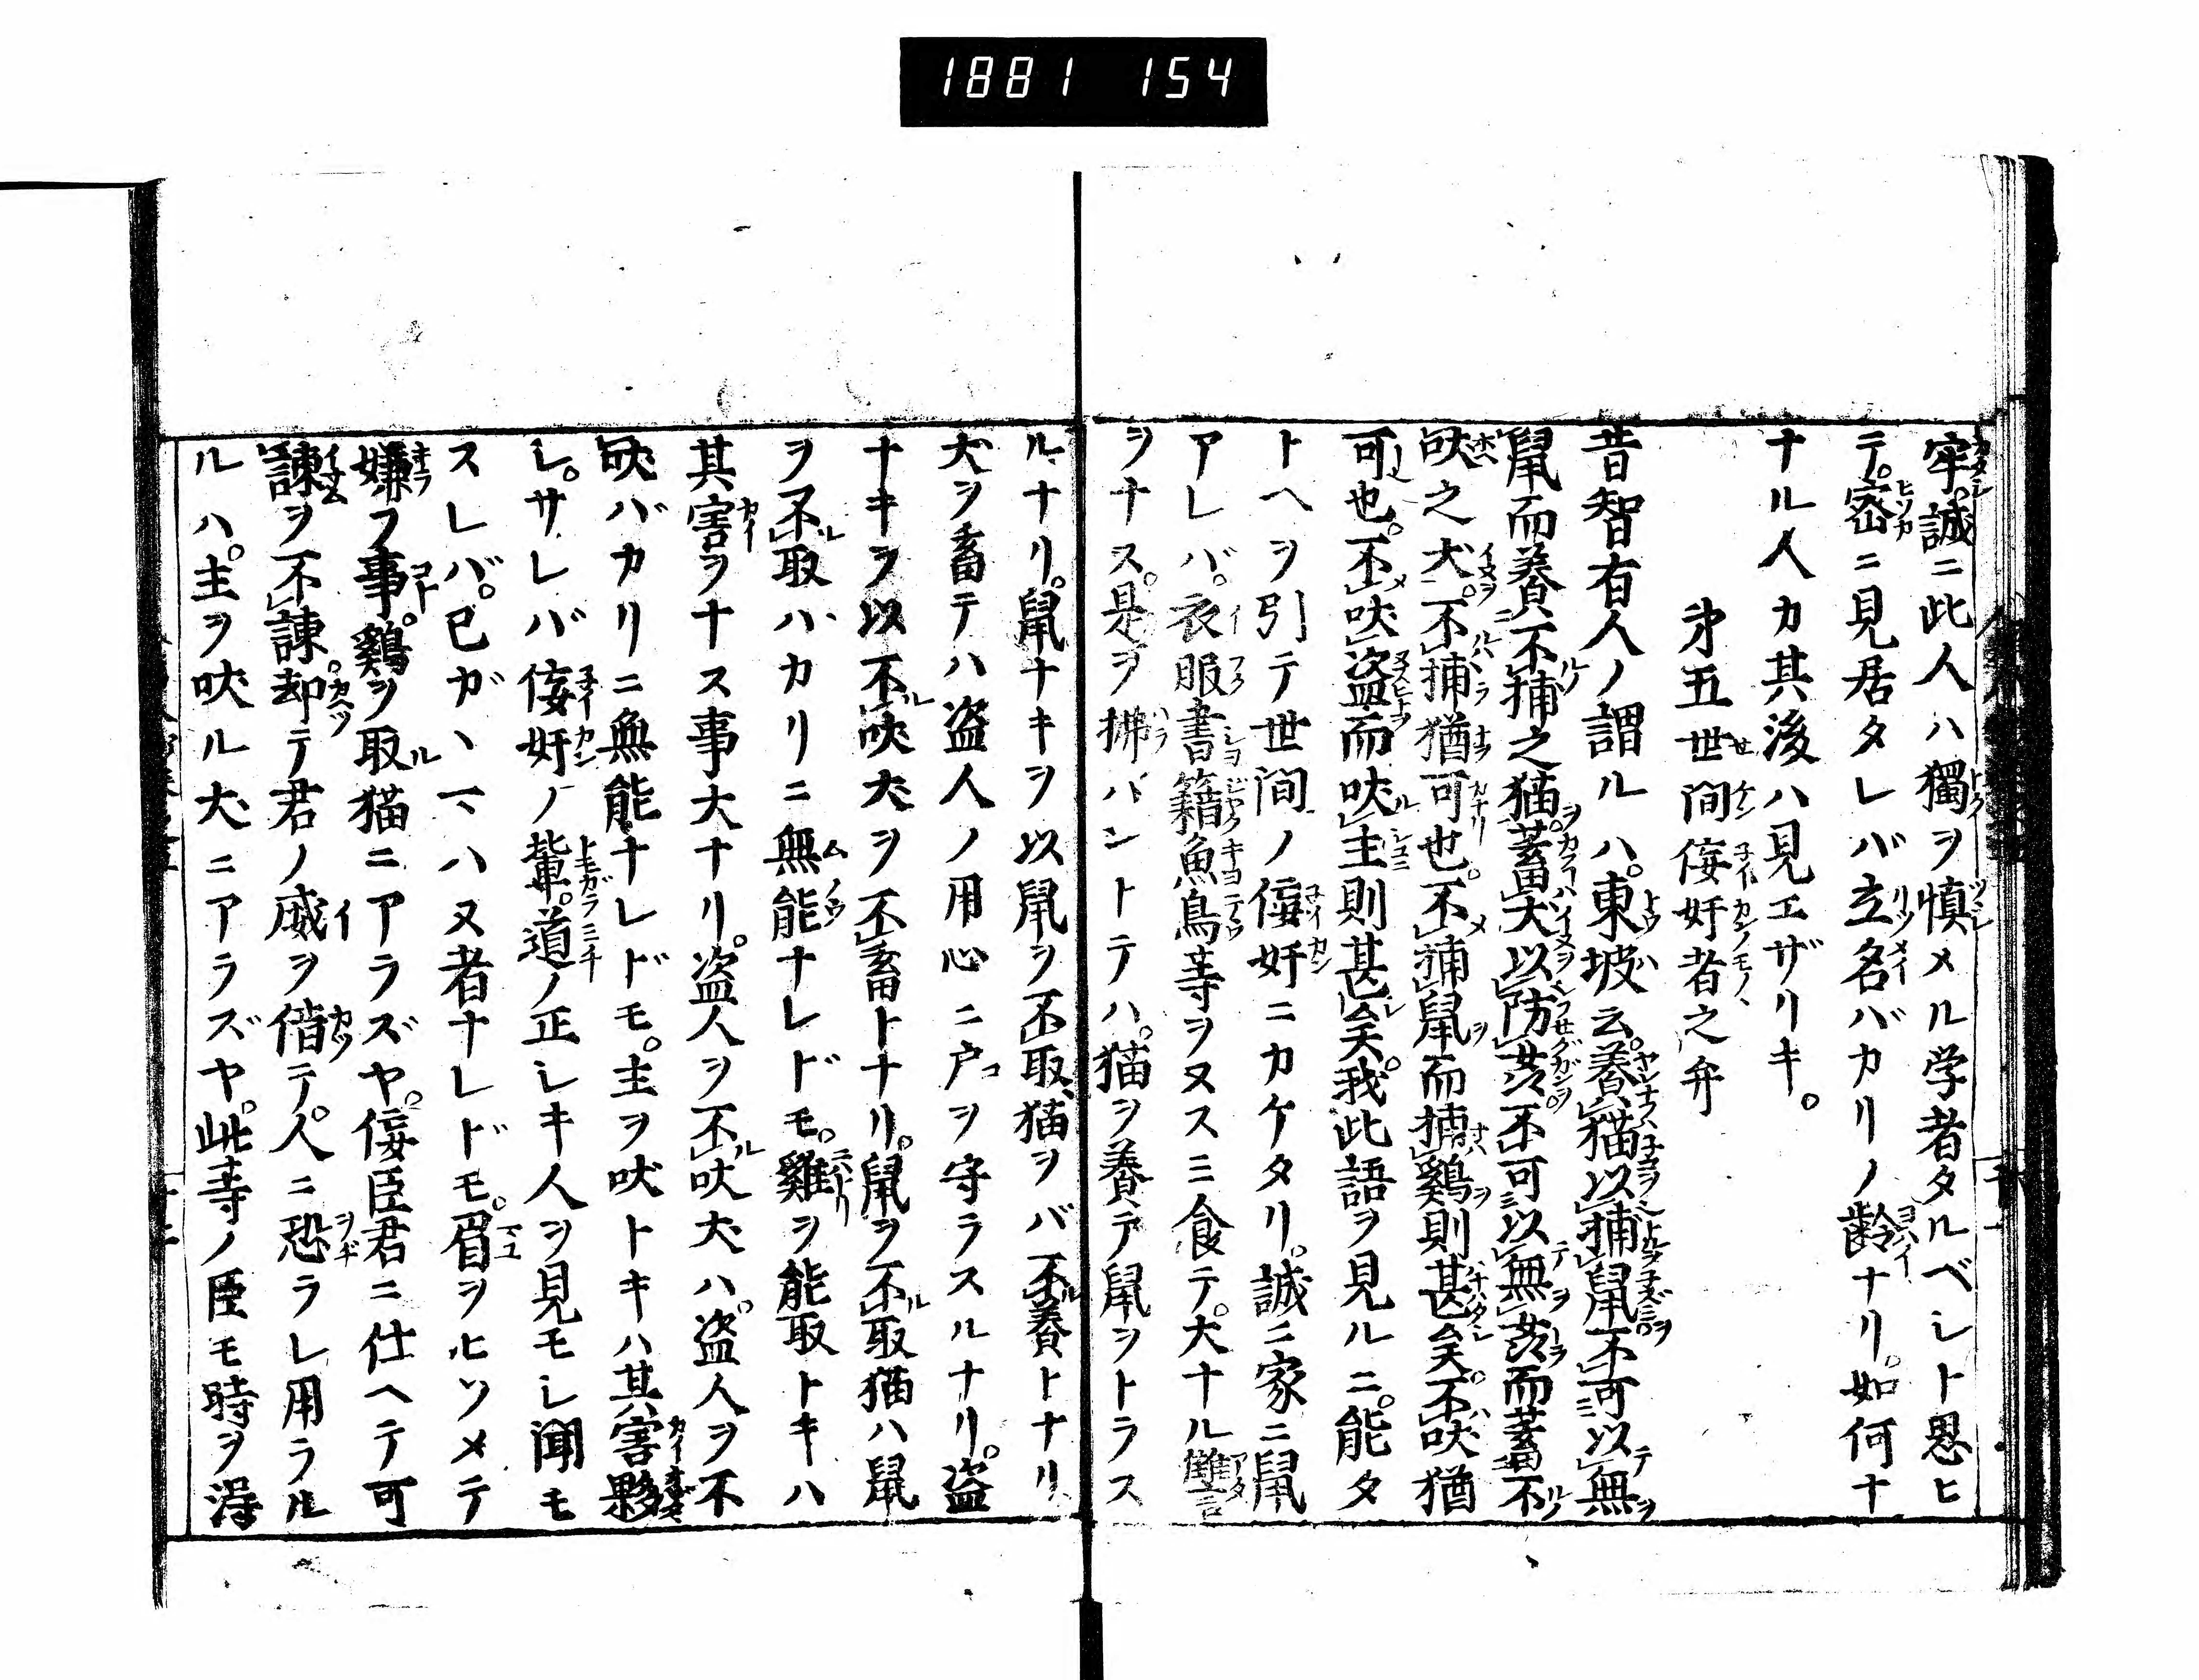 1881 154
牢。誠ニ此人ハ獨ヲ慎メル学者タルベシト思ヒ
テ。密ニ見居タレバ立名バカリノ齢ナリ。如何ナ
ナル人カ其後ハ見エザリキ。
第五世間佞奸者之弁
昔智有人ノ謂ルハ。東坡云。養猫以捕鼠。不可以無
鼠而養不捕之猫。蓄犬以防姦。不可以無姦而蓄不
吠之犬。不捕猶可也。不捕鼠而捕鷄則甚矣。不吠猶
可也。不吠盗而吠主則甚矣。我此語ヲ見ルニ。能タ
トヘヲ引テ世間ノ佞奸ニカケタリ。誠ニ家ニ鼠
アレバ。衣服書籍魚鳥等ヲヌスミ食テ。大ナル讎
ヲナス。是ヲ拂ハントテハ。猫ヲ養テ鼠ヲトラス
ルナリ。鼠ナキヲ以鼠ヲ不取猫ヲバ不養トナリ
犬ヲ畜テハ盗人ノ用心ニ戸ヲ守ラスルナリ。盗
ナキヲ以不吠犬ヲ不畜トナリ。鼠ヲ不取猫ハ鼠
ヲ不取ハカリニ無能ナレドモ。雞ヲ能取トキハ
其害ヲナス事大ナリ。盗人ヲ不吠犬ハ。盗人ヲ不
吠バカリニ無能ナレドモ。主ヲ吠トキハ其害夥
シ。サレバ佞奸ノ輩。道ノ正シキ人ヲ見モシ聞モ
スレバ。已ガハヌ者ナレドモ。眉ヲヒソメテ
嫌フ事。鷄ヲ取猫ニアラズヤ。佞臣君ニ仕ヘテ可
諌ヲ不諌。却テ君ノ威ヲ借テ。人ニ恐ラレ用ラル
ルハ。主ヲ吠ル犬ニアラズヤ。此等ノ臣モ時ヲ得